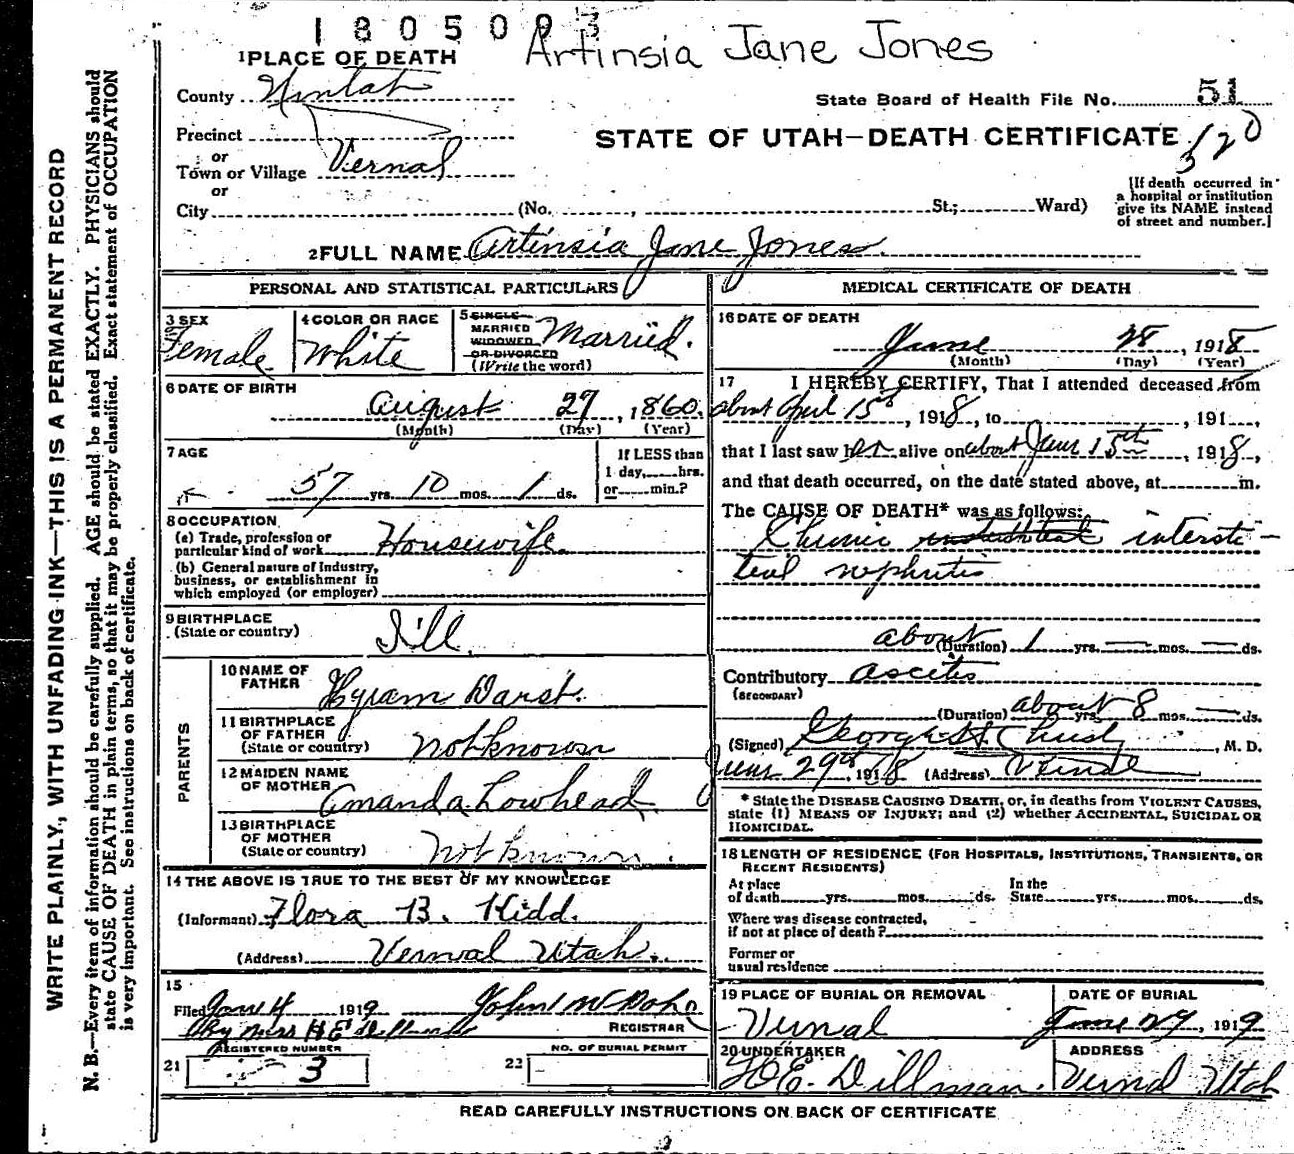 1805093
Artinsia Jane Jones
1 PLACE OF DEATH
County Uintah
State Board of Health File No. 51
Precinct
STATE OF UTAH—DEATH CERTIFICATE
520
or
Town or Village Vernal
or
City (No. , St.; Ward)
[If death occurred in
a hospital or institution
give its NAME instead
of street and number.]
2 FULL NAME Artinsia Jane Jones.
PERSONAL AND STATISTICAL PARTICULARS
3 SEX
Female
4 COLOR OR RACE
White
5 SINGLE
MARRIED
WIDOWED
OR DIVORCED
(Write the word)
Married.
6 DATE OF BIRTH
August 27, 1860.
(Month) (Day) (Year)
7 AGE
57 yrs. 10 mos. 1 ds.
If LESS than
1 day, hrs.
or min.?
8 OCCUPATION
(a) Trade, profession or
particular kind of work Housewife.
(b) General nature of industry,
business, or establishment in
which employed (or employer)
9 BIRTHPLACE
(State or country) Ill.
PARENTS
10 NAME OF
FATHER Hyram Darst.
11 BIRTHPLACE
OF FATHER
(State or country) not known
12 MAIDEN NAME
OF MOTHER Amanda Lowhead
13 BIRTHPLACE
OF MOTHER
(State or country) not known.
14 THE ABOVE IS TRUE TO THE BEST OF MY KNOWLEDGE
(Informant) Flora B. Kidd.
(Address) Vernal Utah.
15
Filed Jan 4 1919 John M
By Miss H E Dillman
REGISTRAR
REGISTERED NUMBER
21 3
NO. OF BURIAL PERMIT
22
MEDICAL CERTIFICATE OF DEATH
16 DATE OF DEATH
June 28, 1918
(Month) (Day) (Year)
17 I HEREBY CERTIFY, That I attended deceased from
about April 15th, 1918, to , 191 ,
that I last saw her alive on about June 15th, 1918,
and that death occurred, on the date stated above, at m.
The CAUSE OF DEATH* was as follows:
Chronic intersti-
tial nephritis
about (Duration) 1 yrs. — mos. — ds.
Contributory ascites
(SECONDARY)
(Duration) about yrs. 8 mos. — ds.
(Signed) George H Christy, M. D.
June 29th, 1918 (Address) Vernal
* State the DISEASE CAUSING DEATH, or, in deaths from VIOLENT CAUSES,
state (1) MEANS OF INJURY; and (2) whether ACCIDENTAL, SUICIDAL OR
HOMICIDAL.
18 LENGTH OF RESIDENCE (FOR HOSPITALS, INSTITUTIONS, TRANSIENTS, OR
RECENT RESIDENTS)
At place
of death yrs. mos. ds.
In the
State yrs. mos. ds.
Where was disease contracted,
if not at place of death?
Former or
usual residence
19 PLACE OF BURIAL OR REMOVAL
Vernal
DATE OF BURIAL
June 29, 1919
20 UNDERTAKER
H.E. Dillman.
ADDRESS
Vernal Utah
READ CAREFULLY INSTRUCTIONS ON BACK OF CERTIFICATE
WRITE PLAINLY, WITH UNFADING INK—THIS IS A PERMANENT RECORD
N. B.—Every item of information should be carefully supplied. AGE should be stated EXACTLY. PHYSICIANS should
state CAUSE OF DEATH in plain terms, so that it may be properly classified. Exact statement of OCCUPATION
is very important. See instructions on back of certificate.